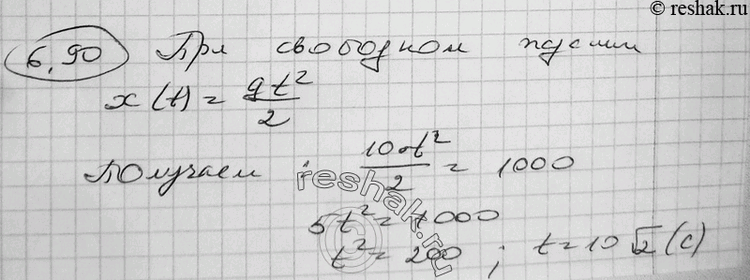 © reshak.ru
6,90 При свободном падении
x(t) = gt²/2
Получаем : 10t²/2 = 1000
5t² = 1000
t² = 200 ; t = 10√2 (с)
reshak.ru